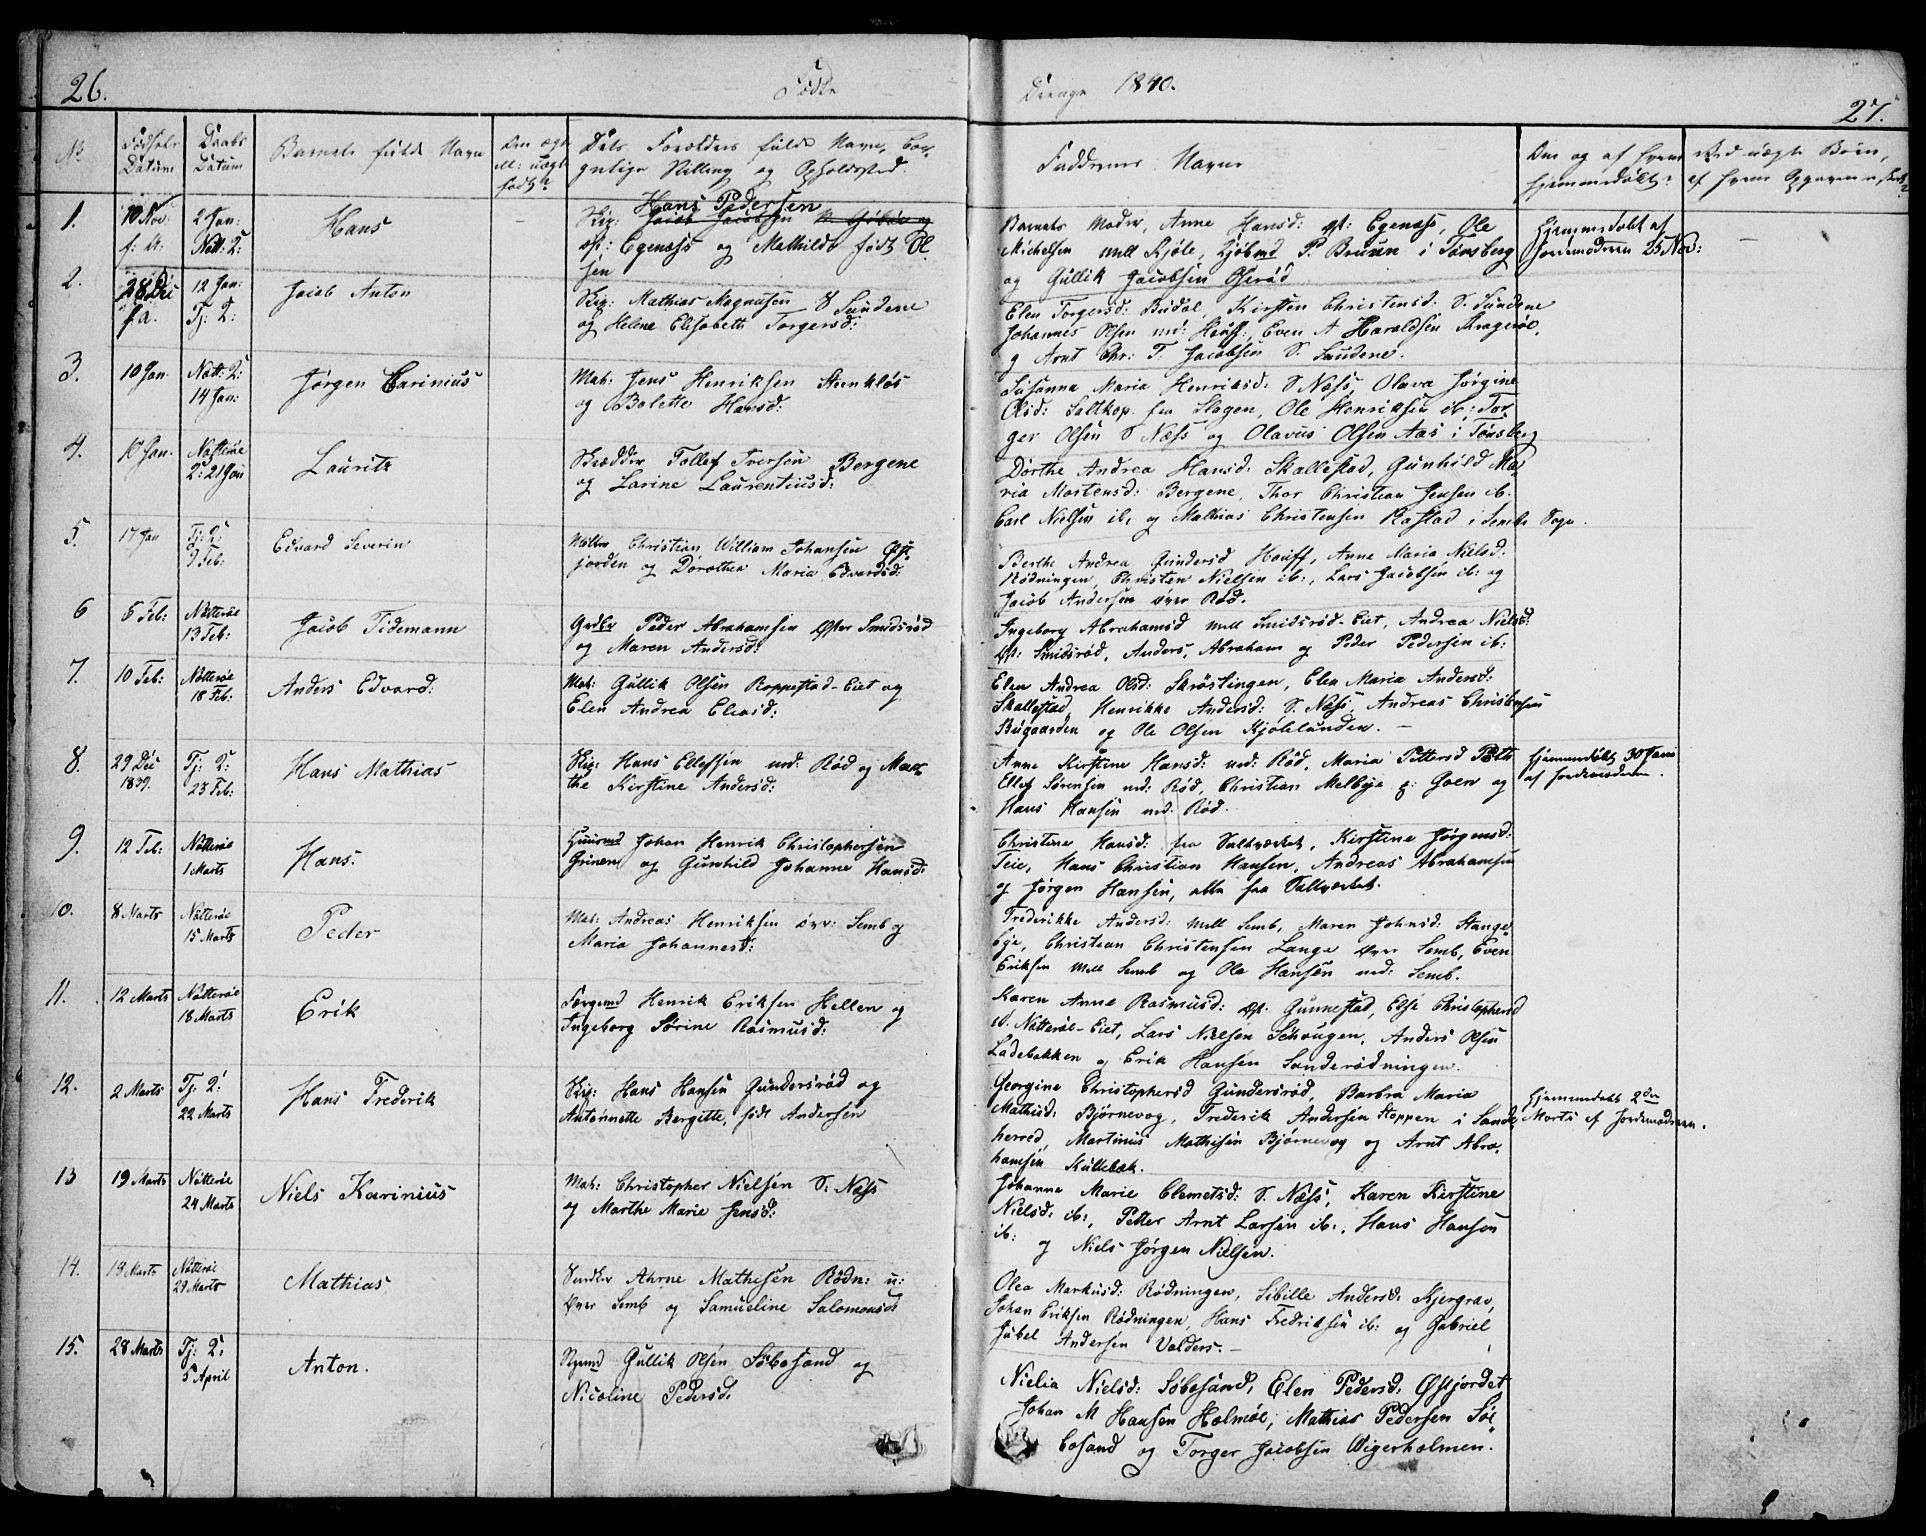 26. Fødte
Drenge 1840. 27.
No Fødsels Datum Daabs Datum Barnets fulde Navn Om ægte ell: uægte født? Dets Forældres fulde Navn, Bor-
gerlige Stilling og Opholdssted.
Faddernes Navne
Om og af hvem
hjemmedøbt?
Ved uægte Børn,
1. 10 Nov: f. A. 2 Jan: Nøtt: 2: Hans —
Hans Pedersen
Skip: Jacob Jacobsen
Øst: Egenæss og Mathilde født Ol
sen
Barnets Moder, Anne Hansd: Øst: Egenæss, Ole
Michelsen mell Kjøle, Kjøbmd P. Bruun i Tønsberg
og Gullik Jacobsen Oserød
Hjemmedøbt af
Jordemoderen 25 Nov:
—
2. 28 Dec f. a. 12 Jan: Tj: 2: Jacob Anton
Skip: Mathias Magnusen S Sundene
og Helene Elisabeth Torgersd:
Elen Torgersd: Budal, Kirsten Christensd: S. Sundene
Johannes Olsen nd: Hauff, Even A Haraldsen Kragerøe,
og Arnt Chr: T. Jacobsen S. Sundene.
3. 10 Jan. Nøtt: 2: 14 Jan: Jørgen Carinius
Mat: Jens Henriksen Steenkløs
og Bolette Hansd:
Susanna Maria Henriksd: S Næss, Olava Jørgine
Olsd: Saltkop. fra Slagen, Ole Henriksen ib: Tor
ger Olsen S Næss og Olavus Olsen Aas i Tønsberg
4. 10 Jan. Nøtterøe 2: 21 Jan Lauritz
Skrædder Tollef Iversen Bergene
og Larine Laurentiusd:
Dorthe Andrea Hansd: Skallestad, Gunhild Ma
ria Mortensd: Bergene, Thor Christian Jensen ib.
Carl Nielsen ib, og Mathias Christensen Rastad i Sembs Sogn.
5. 17 Jan Tj: 2: 9 Feb: Edvard Severin
Møller Christian William Johansen Øst
jorden og Dorothea Maria Edvardsd:
Berthe Andrea Gundersd Hauff, Anne Maria Nielsd.
Rødningen, Christen Nielsen ib:, Lars Jacobsen ib: og
Jacob Andersen over Rød.
6 6 Feb: Nøtterøe 13 Feb: Jacob Tidemann
Grdbr Peder Abrahamsen Øster Smidsrød
og Maren Andersd:
Ingeborg Abrahamsd mell Smidsrød-Eiet, Andrea Nielsd:
Øst: Smidsrød, Anders, Abraham og Peder Pedersen ib:
7. 10 Feb: Nøtterøe 18 Feb: Anders Edvard:
Mat: Gullik Olsen Roppestad-Eiet og
Elen Andrea Eliasd:
Elen Andrea Olsd: Skrøslingen, Elen Maria Andersd:
Skallestad, Henrikke Andersd: S. Næss, Andreas Christensen
Buegaarden og Ole Olsen Kjøbelunden. —
8. 29 Dec 1839. Tj: 2: 23 Feb: Hans Mathias
Skip: Hans Ellefsen nd: Rød og Mar-
the Kirstine Andersd:
Anne Kirstine Hansd: nd: Rød, Maria Pettersd
Ellef Sørensen nd: Rød, Christian Melbye p: Goen og
Hans Hansen nd: Rød.
Hjemmedøbt 30 Janu
af Jordemoderen.
9. 12 Feb: Nøtterøe 1 Marts Hans.
Huusmd Johan Henrik Christophersen
Grinen og Gunhild Johanne Hansd:
Christine Hansd: fra Saltværket, Kirstine Jørgensd:
Teie, Hans Christian Hansen, Andreas Abrahamsen
og Jørgen Hansen, alle fra Saltværket.
10. 8 Marts Nøtterøe 15 Marts Peder
Mat: Andreas Henriksen over Semb og
Maria Johannesd:
Frederikke Andersd: mell Semb, Maren Johnsd: Stange
bye, Christian Christensen Lange over Semb, Even
Eriksen mell Semb og Ole Hansen nd: Semb.
11. 12 Marts Nøtterøe 18 Marts Erik
Færgemd Henrik Eriksen Hellen og
Ingeborg Sørine Rasmusd:
Karen Anne Rasmusd: Øst. Gunnestad, Else Christophersd
v. Nøtterøe-Eiet, Lars Nielsen Schougen, Anders Olsen
Ladebakken og Erik Hansen Sanderødningen.
12. 2 Marts Tj: 2: 22 Marts Hans Frederik
Skip: Hans Hansen Gundersrød og
Antonnette Bergitte, født Andersen
Georgine Christophersd Gundersrød, Barbra Maria
Mathisd: Bjørnevog, Frederik Andersen Stoppen i Sande
herred, Martinus Mathisen Bjørnevog og Arnt Abra
hamsen Kullebæk.
Hjemmedøbt 2den
Marts af Jordemoderen.
13 19 Marts Nøtterøe 24 Marts Niels Karinius
Mat: Christopher Nielsen S: Næss
og Marthe Marie Jensd:
Johanne Marie Clemetsd: S. Næss, Karen Kirstine
Nielsd: ib:, Petter Arnt Larsen ib:, Hans Hansen
ib: og Niels Jørgen Nielsen.
14. 19 Marts Nøtterøe 29 Marts Mathias
Snedker Ahrne Mathisen Rødn: u:
Over Semb og Samueline Salomonsd
Olea Markusd: Rødningen, Sibille Andersd: Kjergrav,
Johan Eriksen Rødningen, Hans Fredriksen ib: og Gabriel
Jubel Andersen Valders. —
15. 28 Marts Tj: 2: 5 April Anton.
Gullik Olsen Søbosand og
Nicoline Pedersd.
Nielia Nielsd: Søbosand, Elen Pedersd, Østjordet,
Johan M Hansen Holmøe, Mathias Pedersen Sø
bosand og Torger Jacobsen Wigerholmen.